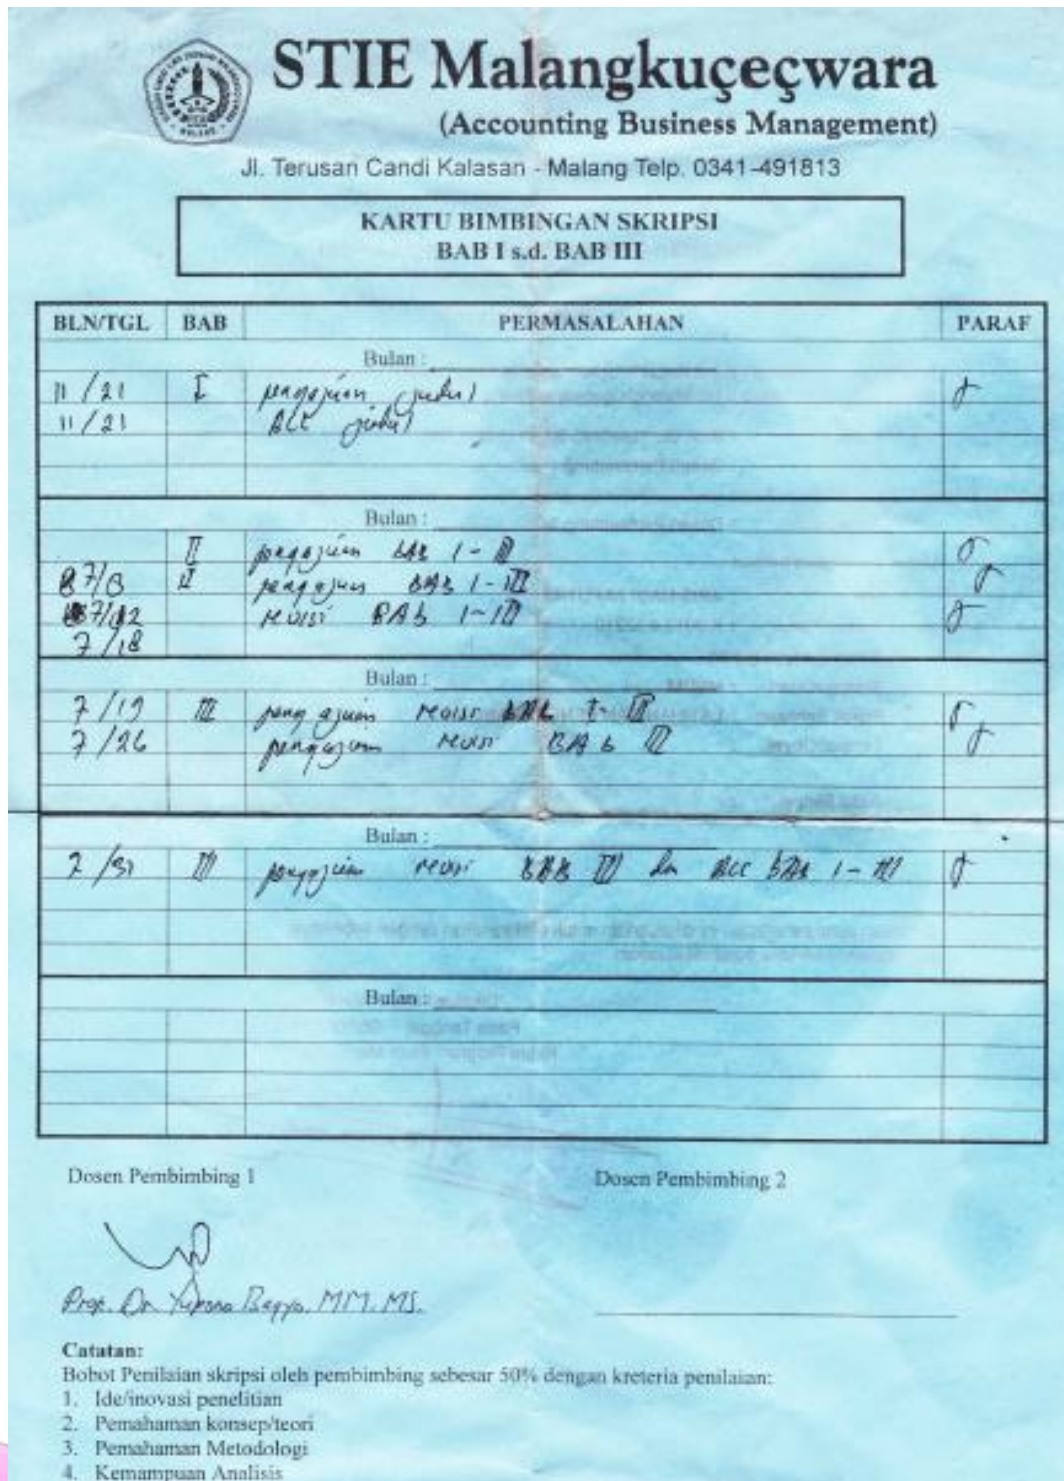 STIE Malangkuçeçwara
(Accounting Business Management)
Jl. Terusan Candi Kalasan - Malang Telp. 0341-491813
KARTU BIMBINGAN SKRIPSI
BAB I s.d. BAB III
BLN/TGL BAB PERMASALAHAN PARAF
Bulan :
11/21 I pengajuan judul
11/21 Acc judul
Bulan :
II pengajuan BAB I - III
II pengajuan BAB I - III
revisi BAB I - III
7/18
Bulan :
7/19 III pengajuan revisi BAB I - III
7/26 pengajuan revisi BAB III
Bulan :
7/31 III pengajuan revisi BAB III dan Acc BAB I - III
Bulan :
Dosen Pembimbing 1 Dosen Pembimbing 2
Prof. Dr. Bagyo, MM. MS.
Catatan:
Bobot Penilaian skripsi oleh pembimbing sebesar 50% dengan kreteria penilaian:
1. Ide/inovasi penelitian
2. Pemahaman konsep/teori
3. Pemahaman Metodologi
4. Kemampuan Analisis